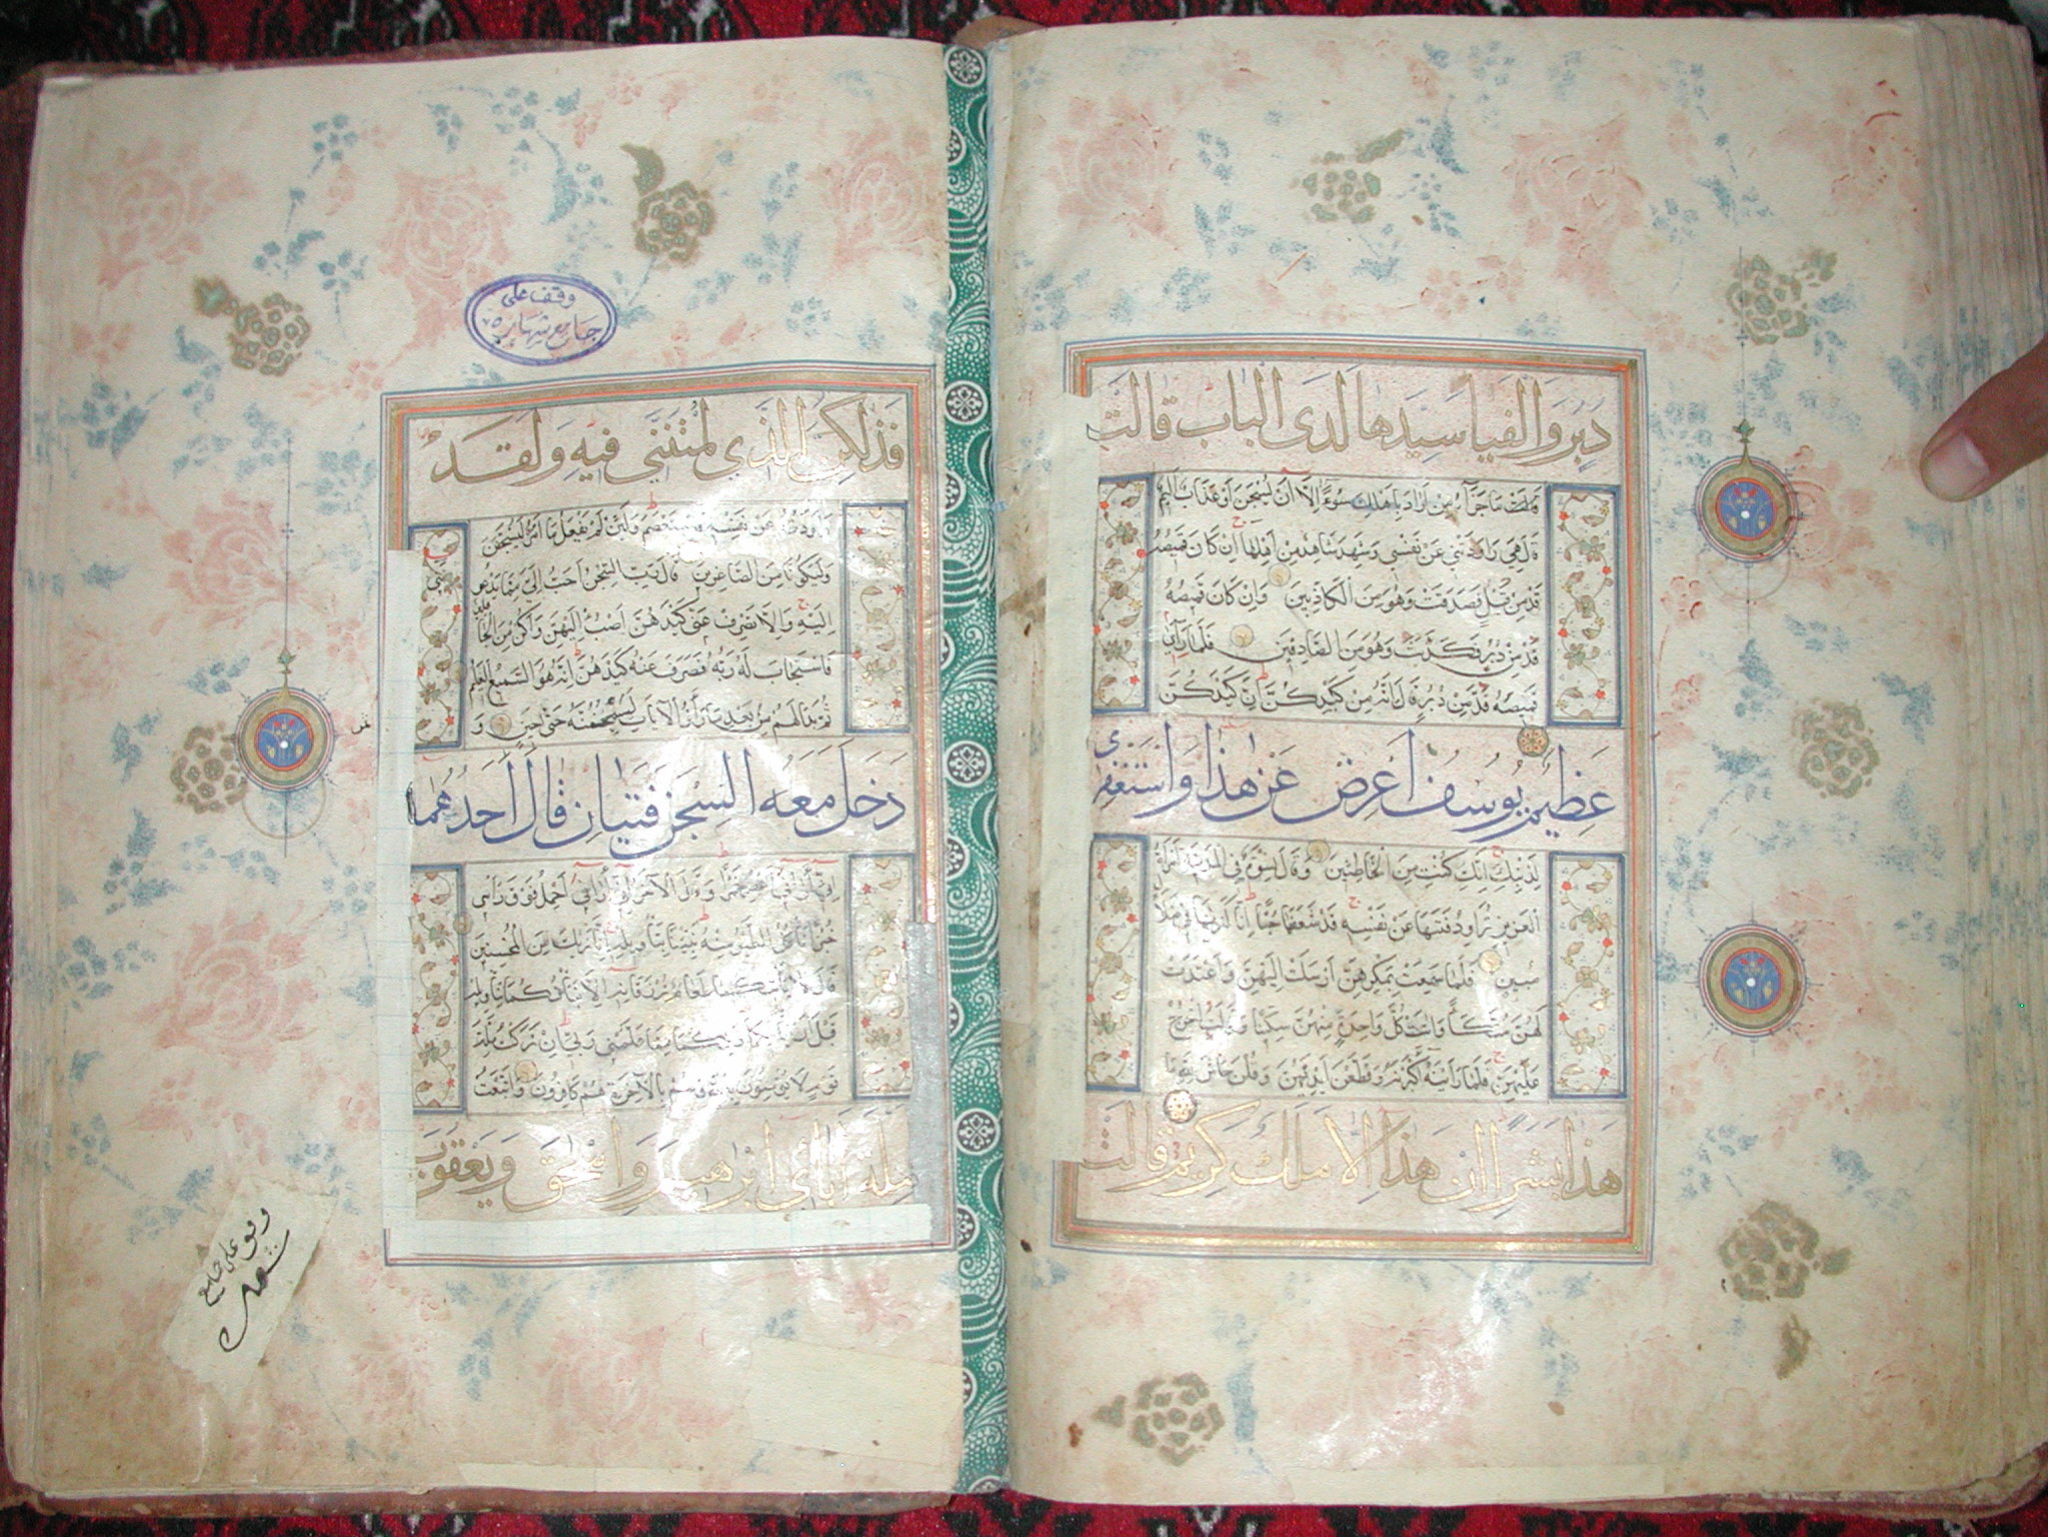 دبر والفيا سيدها لدى الباب قالت
ما جزاء من اراد باهلك سوءا الا ان يسجن او عذاب اليم
قال هي راودتني عن نفسي وشهد شاهد من اهلها ان كان قميصه
قد من قبل فصدقت وهو من الكاذبين وان كان قميصه
قد من دبر فكذبت وهو من الصادقين فلما رأى
قميصه قد من دبر قال انه من كيدكن ان كيدكن
عظيم يوسف اعرض عن هذا واستغفري
لذنبك انك كنت من الخاطئين وقال نسوة في المدينة امرأت
العزيز تراود فتيها عن نفسه قد شغفها حبا انا لنريها في ضلال
مبين فلما سمعت بمكرهن ارسلت اليهن واعتدت
لهن متكأ واتت كل واحدة منهن سكينا وقالت اخرج
عليهن فلما رأينه اكبرنه وقطعن ايديهن وقلن حاش لله ما
هذا بشرا ان هذا الا ملك كريم قالت
وقف على
جامع شهاره
فذلكن الذي لمتنني فيه ولقد
راودته عن نفسه فاستعصم ولئن لم يفعل ما امره ليسجنن
وليكونا من الصاغرين قال رب السجن احب الي مما يدعونني
اليه والا تصرف عني كيدهن اصب اليهن واكن من الجاهلين
فاستجاب له ربه فصرف عنه كيدهن انه هو السميع العليم
ثم بدا لهم من بعد ما رأوا الآيات ليسجننه حتى حين و
دخل معه السجن فتيان قال احدهما
اني اراني اعصر خمرا وقال الآخر اني اراني احمل فوق رأسي
خبزا تأكل الطير منه نبئنا بتأويله انا نريك من المحسنين
قال لا يأتيكما طعام ترزقانه الا نبأتكما بتأويله
قبل ان يأتيكما ذلكما مما علمني ربي اني تركت ملة
قوم لا يؤمنون بالله وهم بالآخرة هم كافرون واتبعت
ملة ابائي ابرهيم واسحق ويعقوب
وقف على جامع
شهاره